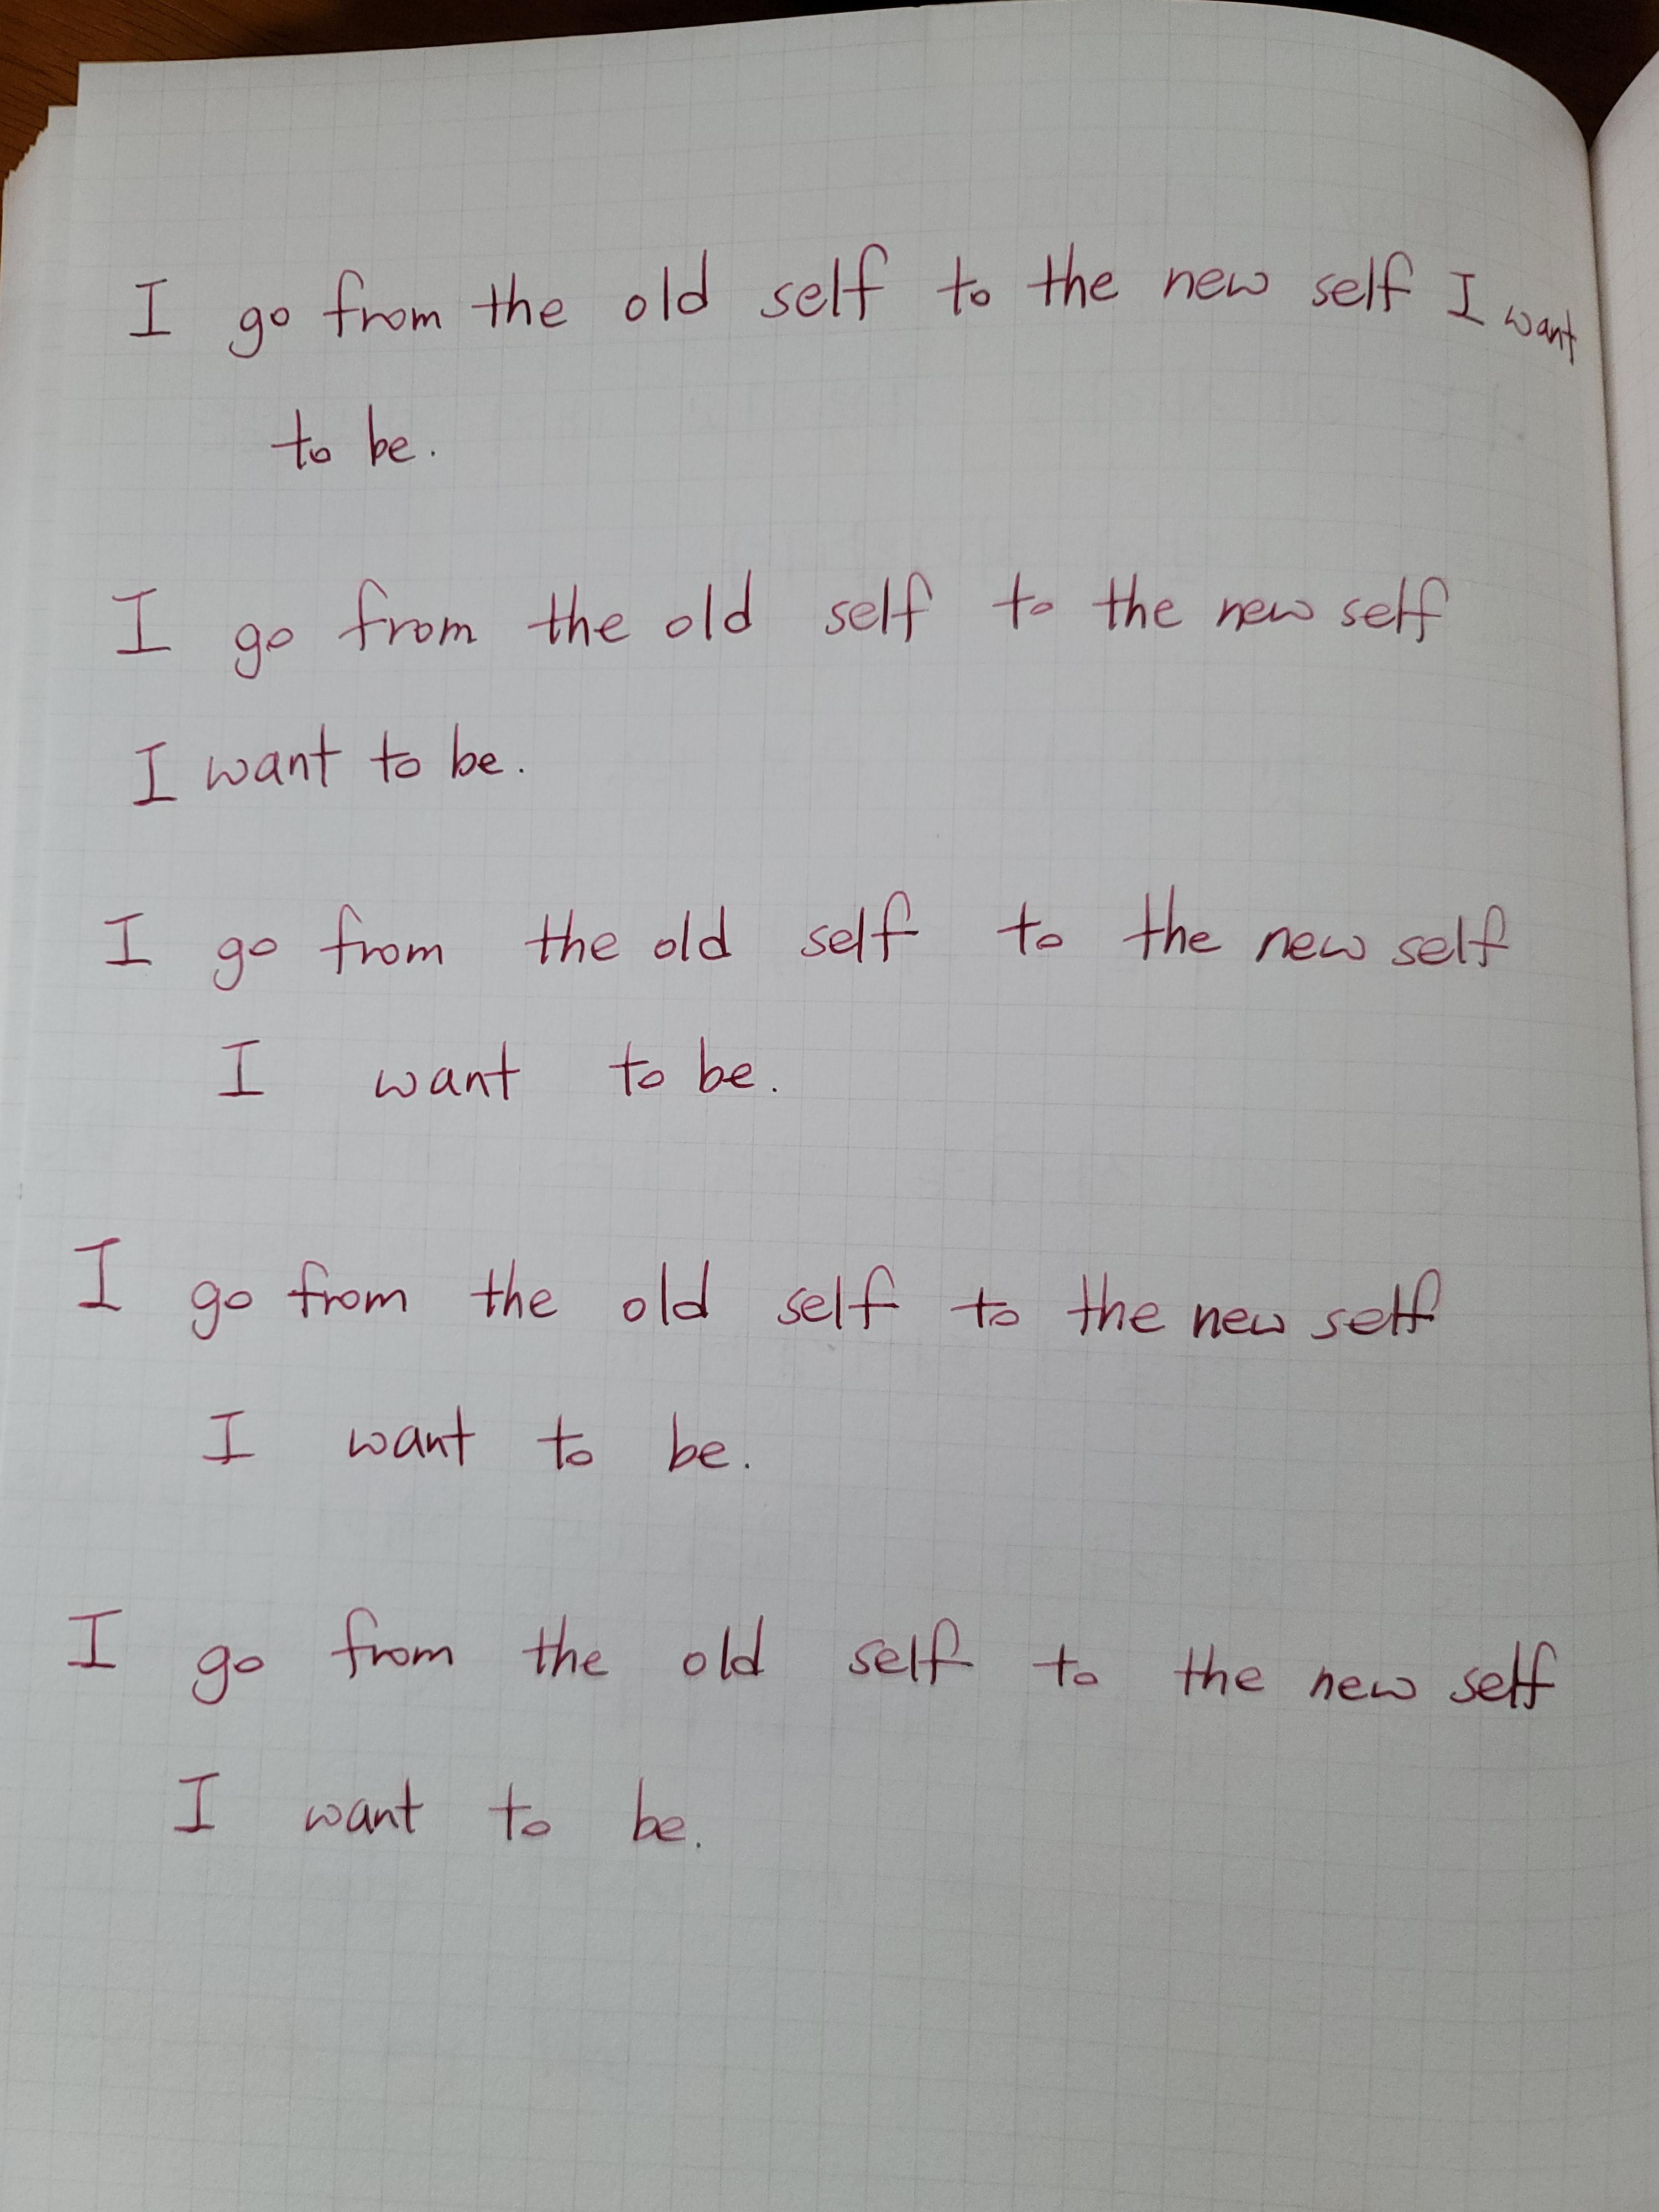 I go from the old self to the new self I want
to be.
I go from the old self to the new self
I want to be.
I go from the old self to the new self
I want to be.
I go from the old self to the new self
I want to be.
I go from the old self to the new self
I want to be.